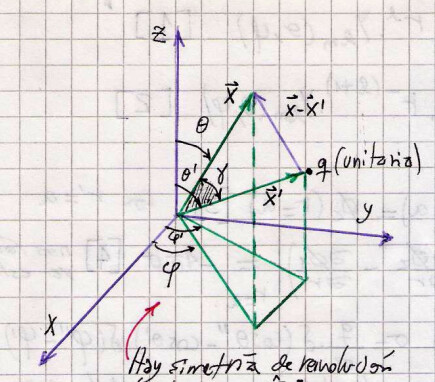 Z
X⃗
X⃗-X⃗'
θ
θ'
γ
q (unitaria)
X⃗'
y
φ'
φ
X
Hay simetría de revolución